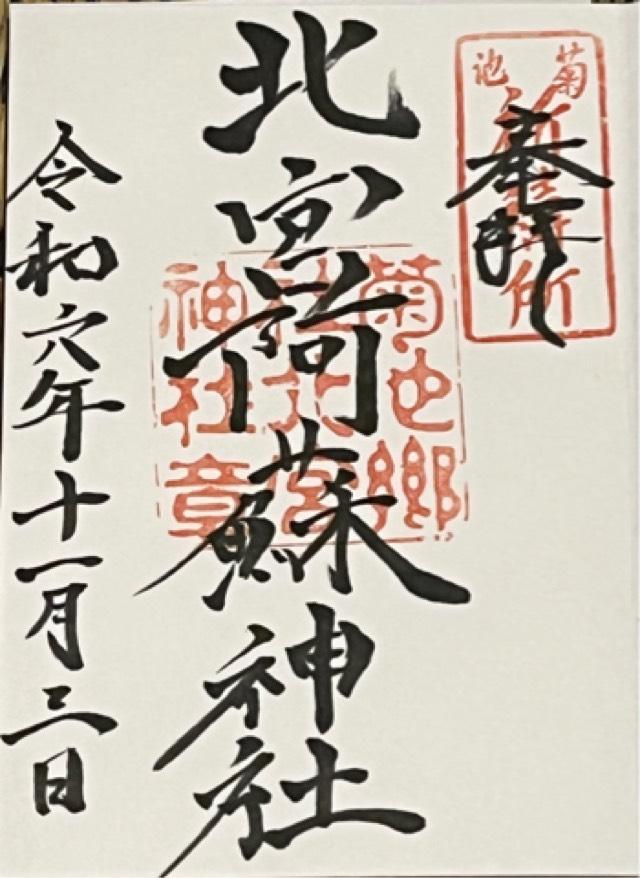 菊池
奉拝
北宮阿蘇神社
菊池郷
社北宮
神社章
令和六年十一月三日